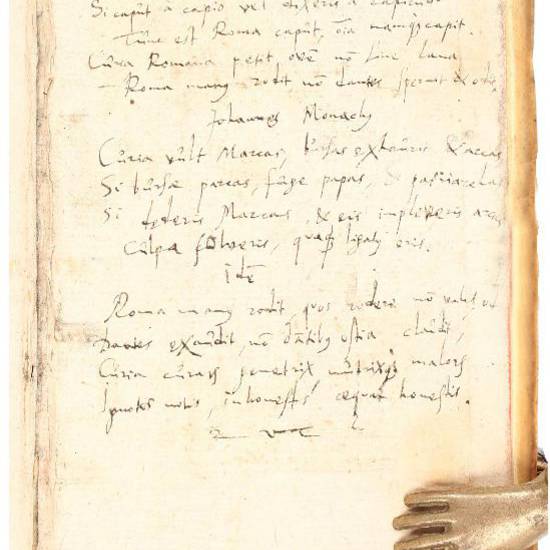 Si caput a capio vel dixeris a capiendo
Tunc est Roma caput, oia namq; capit.
Curia Romana petit ovem no sine lana
Roma many rodit no dantes spernit & odit,
Johannes Monachy
Curia vult Marcas, bursas exhauris & arcas
Si bursæ parcas, fuge papas, & patriarchas
Si dederis Marcas, & eis impleveris arcas
Culpa solveris, quaq; ligaty eris.
Idē
Roma many rodit, quos rodere nō valet, odit
Dantes exaudit, nō dātiby ostia claudit,
Curia curarū genetrix nutrixq; malorū
Ignotos notis, inhonestis equat honestis.